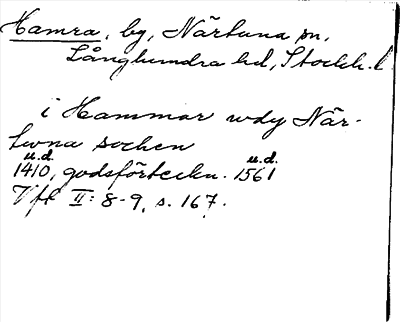 Hamra, by, Närtuna sn,
Långhundra hd, Stockh. l
i Hammar wdy När-
twna sochen
u.d. u.d.
1410, godsförteckn. 1561
Vfl II: 8-9, s. 167.